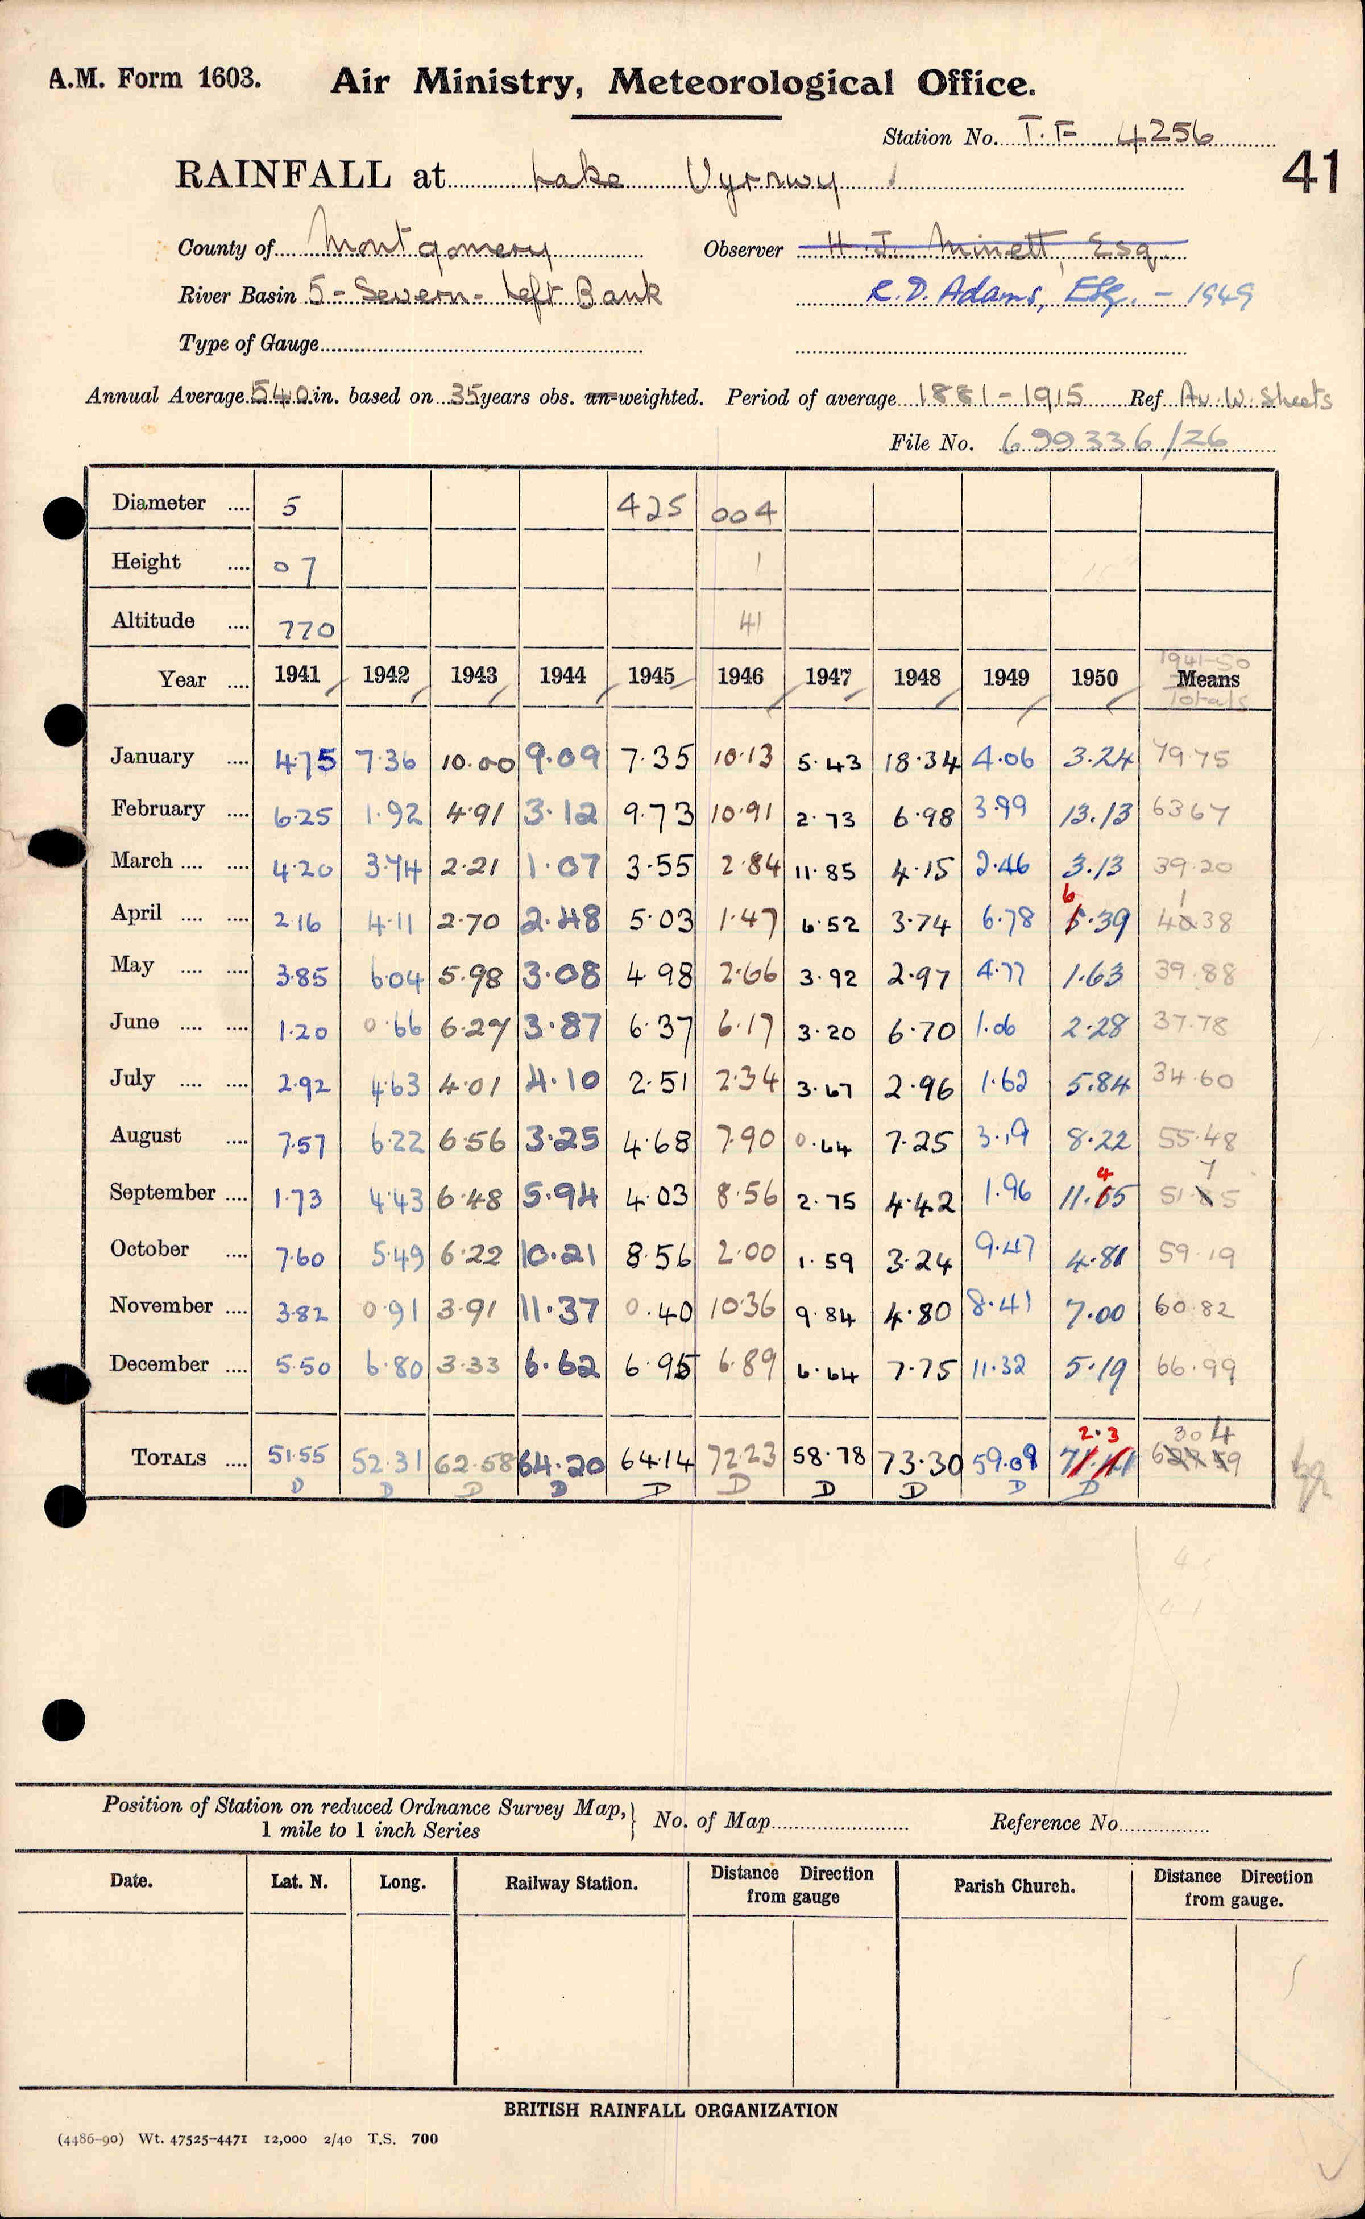 A.M. Form 1603. Air Ministry, Meteorological Office.
Station No. T.F 4256
41
RAINFALL at Lake Vyrnwy
County of Montgomery Observer H.J. Minett, Esq.
River Basin 5 - Severn - Left Bank R.D. Adams, Esq. - 1949
Type of Gauge
Annual Average 54.0 in. based on 35 years obs. un-weighted. Period of average 1881-1915 Ref Av. W. Sheets
File No. 699336/26
Diameter .... 5 425 004
Height .... 07 1
Altitude .... 770 41
1941-50
Year .... 1941 1942 1943 1944 1945 1946 1947 1948 1949 1950 Means
Totals
January .... 4.75 7.36 10.00 9.09 7.35 10.13 5.43 18.34 4.06 3.24 79.75
February .... 6.25 1.92 4.91 3.12 9.73 10.91 2.73 6.98 3.99 13.13 63 67
March .... .... 4.20 3.74 2.21 1.07 3.55 2.84 11.85 4.15 2.46 3.13 39.20
April .... .... 2.16 4.11 2.70 2.48 5.03 1.47 6.52 3.74 6.78 6.39 41.38
May .... .... 3.85 6.04 5.98 3.08 4.98 2.66 3.92 2.97 4.77 1.63 39.88
June .... .... 1.20 0.66 6.27 3.87 6.37 6.17 3.20 6.70 1.06 2.28 37.78
July .... .... 2.92 4.63 4.01 4.10 2.51 2.34 3.67 2.96 1.62 5.84 34.60
August .... 7.57 6.22 6.56 3.25 4.68 7.90 0.64 7.25 3.19 8.22 55.48
September .... 1.73 4.43 6.48 5.94 4.03 8.56 2.75 4.42 1.96 11.45 51.75
October .... 7.60 5.49 6.22 10.21 8.56 2.00 1.59 3.24 9.47 4.81 59.19
November .... 3.82 0.91 3.91 11.37 0.40 10.36 9.84 4.80 8.41 7.00 60.82
December .... 5.50 6.80 3.33 6.62 6.95 6.89 6.64 7.75 11.32 5.19 66.99
TOTALS .... 51.55 52.31 62.58 64.20 64.14 72.23 58.78 73.30 59.09 72.31
D D D D D D D D D D
Position of Station on reduced Ordnance Survey Map, 1 mile to 1 inch Series } No. of Map Reference No.
Date. Lat. N. Long. Railway Station. Distance Direction from gauge Parish Church. Distance Direction from gauge.
BRITISH RAINFALL ORGANIZATION
(4486-90) Wt. 47525-4471 12,000 2/40 T.S. 700